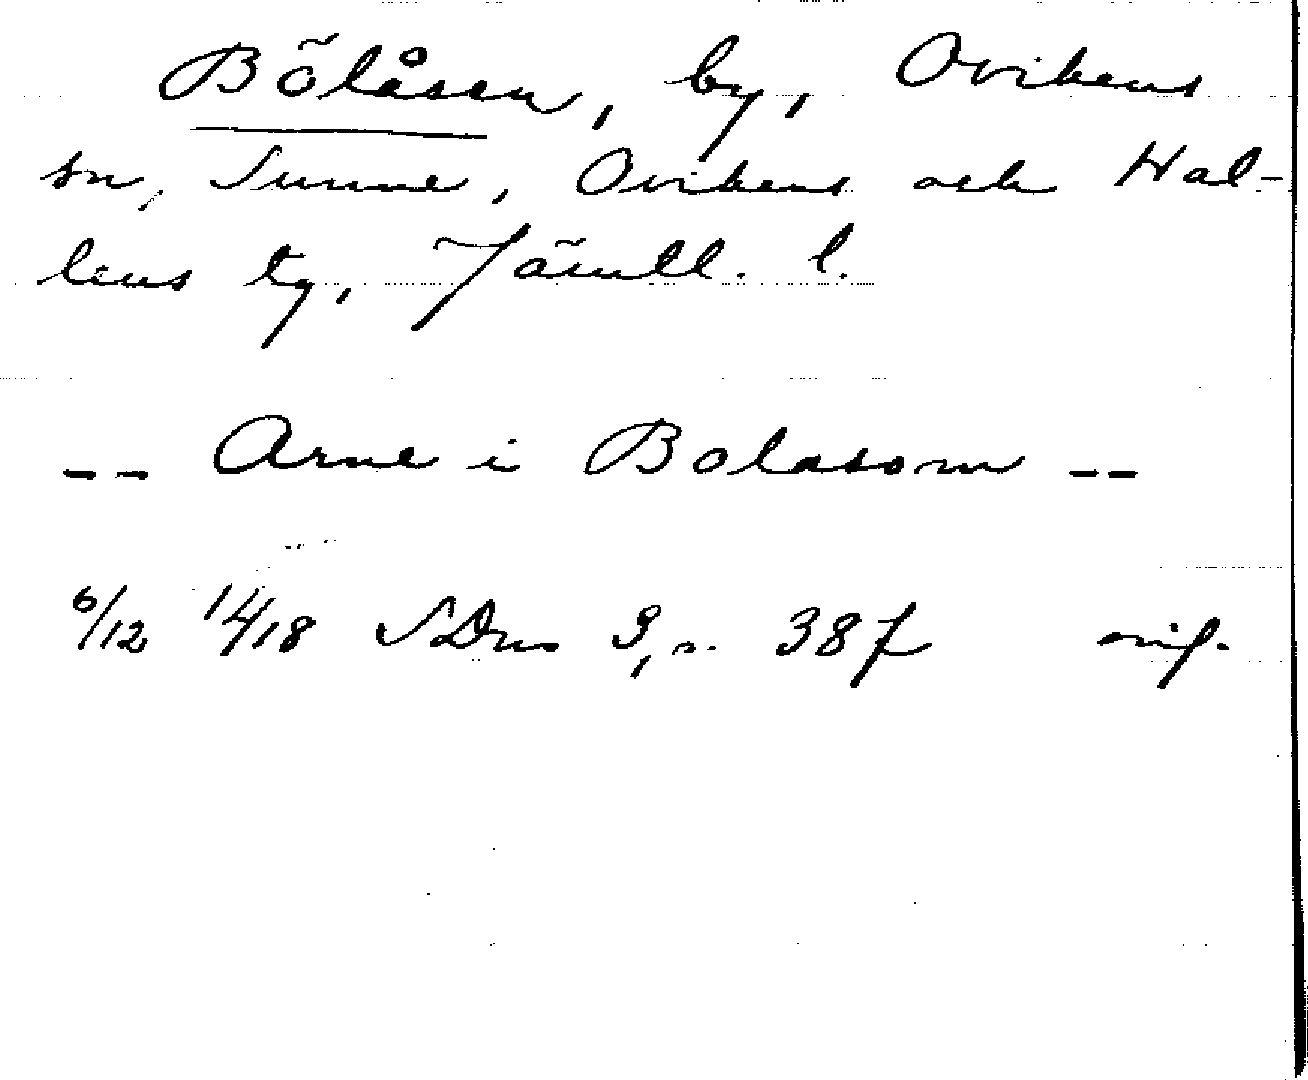 Bölåsen, by, Ovikens
sn, Sunne, Ovikens och Hal-
lens tg, Jämtl. l.
-- Arne i Bolasom --
6/12 14/18 SDns 3, s. 38 f orig.